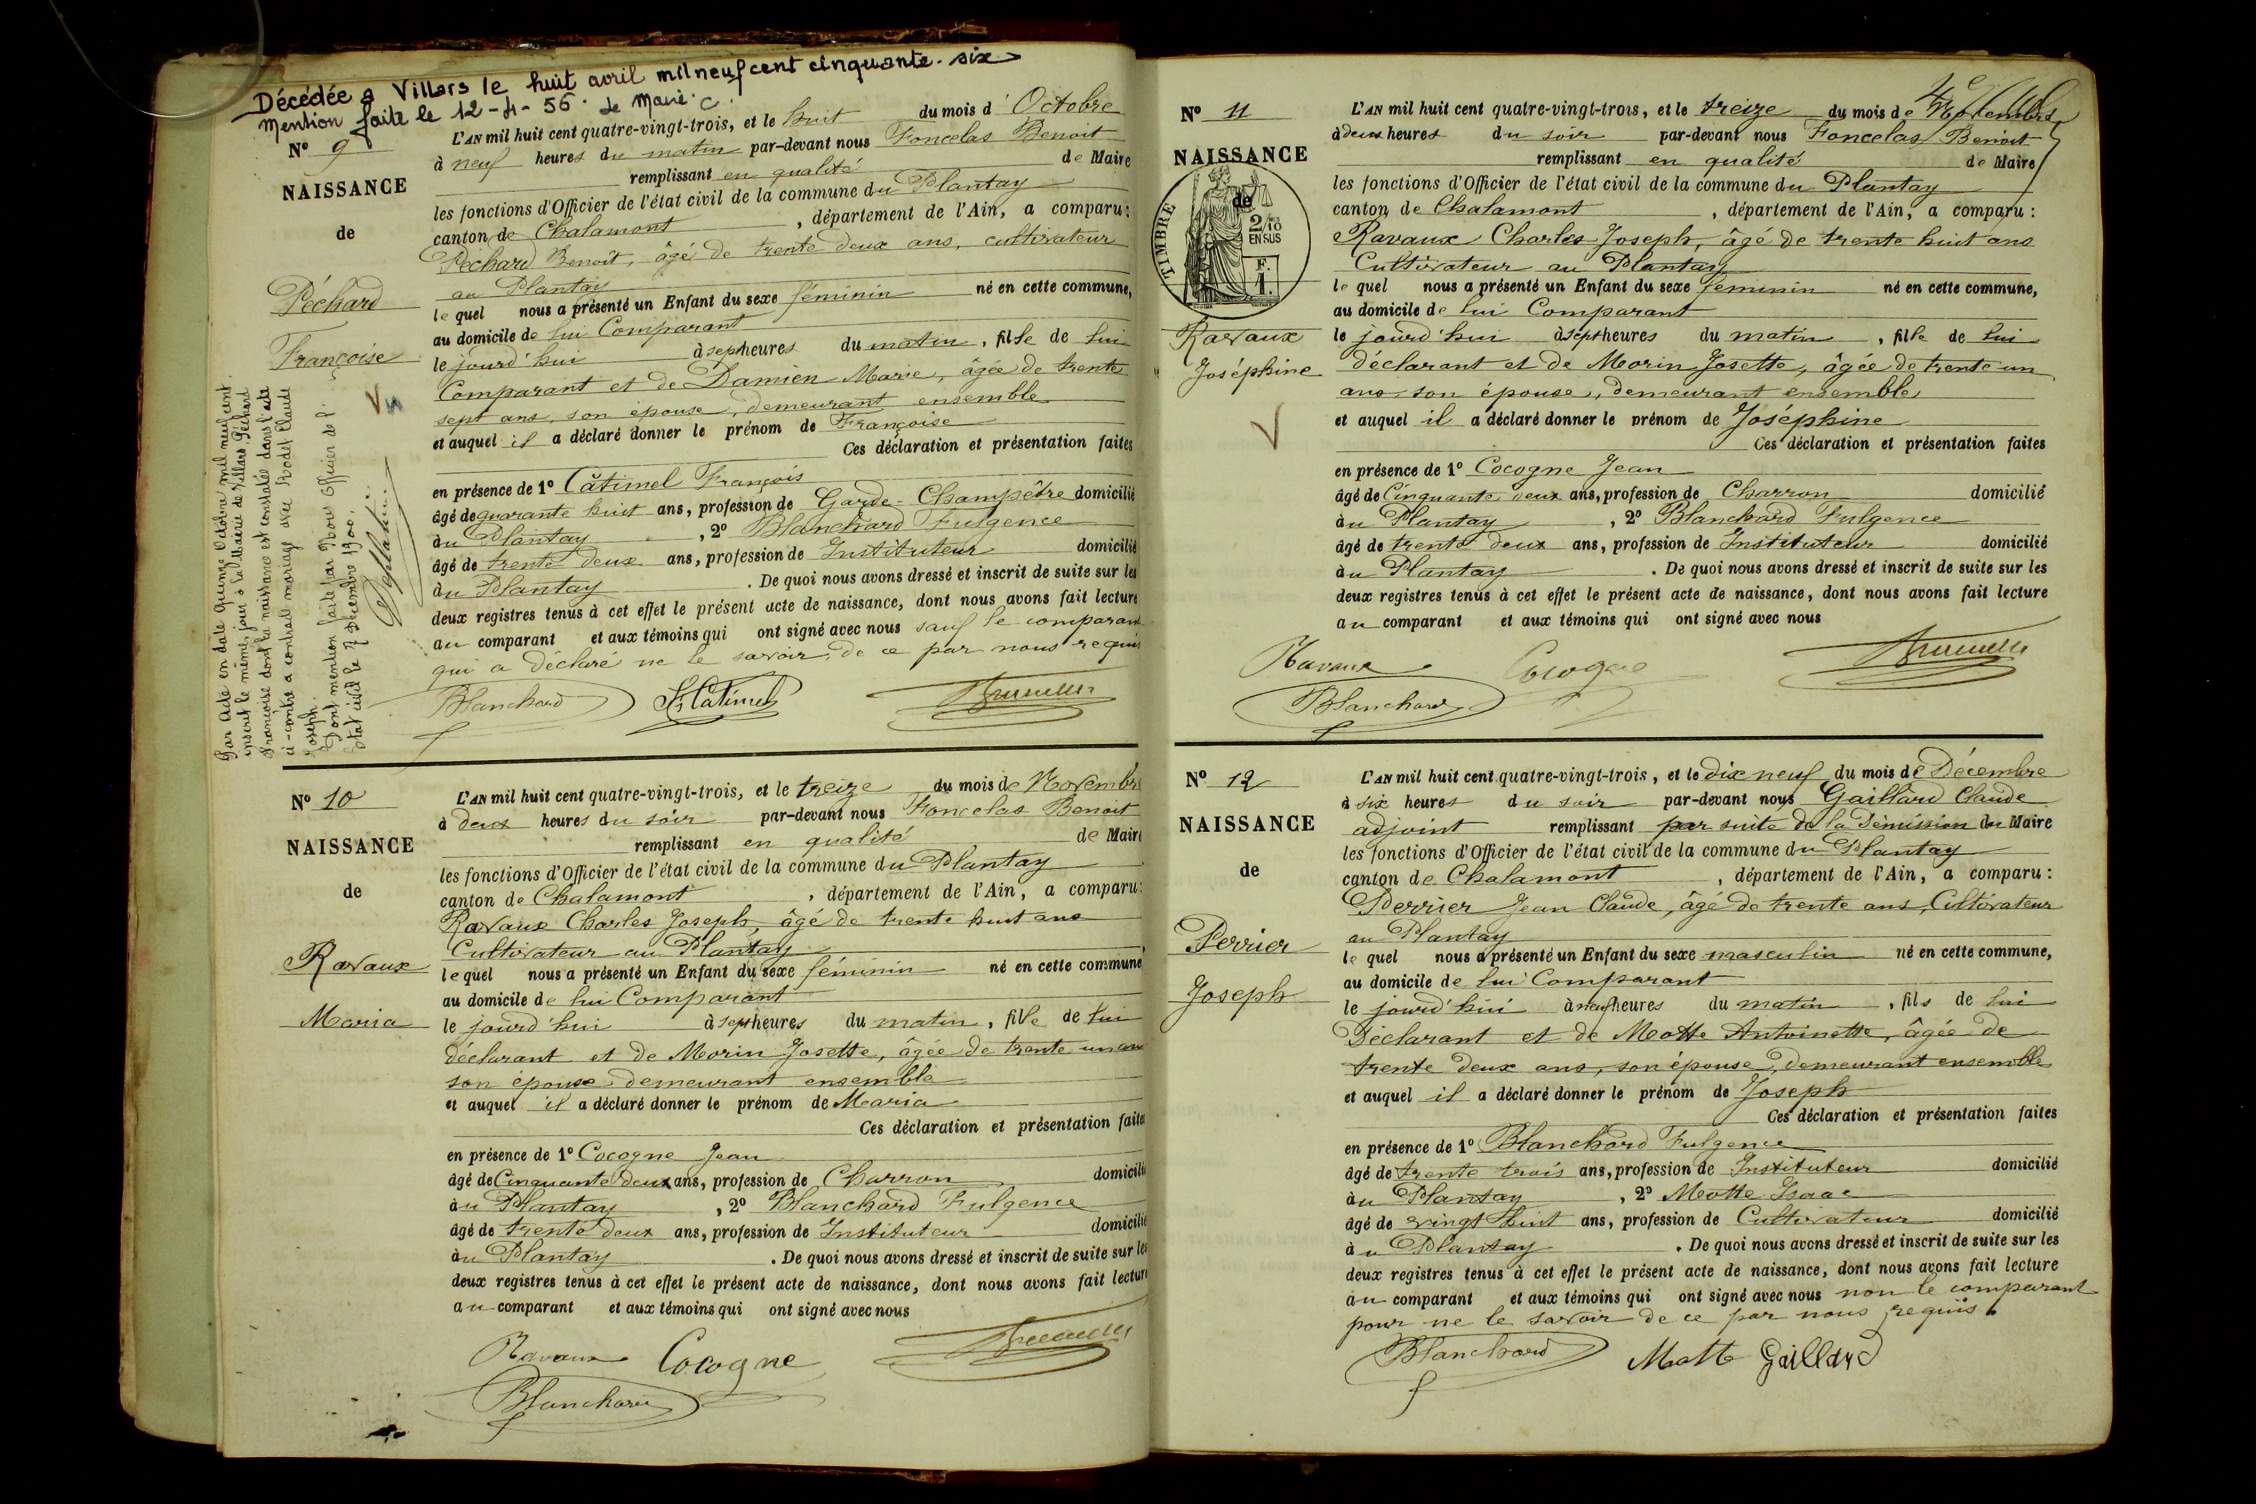 Décédée a Villars le huit avril mil neuf cent cinquante-six
Mention faite le 12-4-56. Le Maire.
N° 9
NAISSANCE
de
Péchard
Françoise
L'AN mil huit cent quatre-vingt-trois, et le huit du mois d'Octobre
à neuf heures du matin par-devant nous Foncelas Benoit
remplissant en qualité de Maire
les fonctions d'Officier de l'état civil de la commune du Plantay
canton de Chalamont, département de l'Ain, a comparu:
Pechard Benoit, âgé de trente deux ans, cultivateur
au Plantay
lequel nous a présenté un Enfant du sexe féminin né en cette commune,
au domicile de lui Comparant
le jourd'hui à sept heures du matin, fille de lui
Comparant et de Damien Marie, âgée de trente
sept ans, son épouse, demeurant ensemble
et auquel il a déclaré donner le prénom de Françoise
Ces déclaration et présentation faites
en présence de 1° Câtimel François
âgé de quarante huit ans, profession de Garde-Champêtre domicilié
au Plantay, 2° Blanchard Fulgence
âgé de trente deux ans, profession de Instituteur domicilié
au Plantay. De quoi nous avons dressé et inscrit de suite sur les
deux registres tenus à cet effet le présent acte de naissance, dont nous avons fait lecture
au comparant et aux témoins qui ont signé avec nous sauf le comparant
qui a déclaré ne le savoir, de ce par nous requis
Blanchard
Catimel
Par acte en date quinze Octobre mil neuf cent
inscrit le même jour à la Mairie de Villars, Péchard
Françoise dont la naissance est constatée dans l'acte
ci-contre a contracté mariage avec Rodet Claude
Joseph.
Dont mention faite par Nous Officier de l'
Etat civil le 17 Décembre 1900.
N° 10
NAISSANCE
de
Ravaux
Maria
L'AN mil huit cent quatre-vingt-trois, et le treize du mois de Novembre
à deux heures du soir par-devant nous Foncelas Benoit
remplissant en qualité de Maire
les fonctions d'Officier de l'état civil de la commune du Plantay
canton de Chalamont, département de l'Ain, a comparu:
Ravaux Charles Joseph, âgé de trente huit ans
Cultivateur au Plantay
lequel nous a présenté un Enfant du sexe féminin né en cette commune
au domicile de lui Comparant
le jourd'hui à sept heures du matin, fille de lui
déclarant et de Morin Josette, âgée de trente un ans
son épouse demeurant ensemble
et auquel il a déclaré donner le prénom de Maria
Ces déclaration et présentation faites
en présence de 1° Cocogne Jean
âgé de Cinquante deux ans, profession de Charron domicilié
au Plantay, 2° Blanchard Fulgence
âgé de trente deux ans, profession de Instituteur domicilié
au Plantay. De quoi nous avons dressé et inscrit de suite sur les
deux registres tenus à cet effet le présent acte de naissance, dont nous avons fait lecture
au comparant et aux témoins qui ont signé avec nous
Ravaux Cocogne
Blanchard
N° 11
NAISSANCE
de
TIMBRE
2/10
EN SUS
F.
1.
Ravaux
Joséphine
L'AN mil huit cent quatre-vingt-trois, et le treize du mois de Novembre
à deux heures du soir par-devant nous Foncelas Benoit
remplissant en qualité de Maire
les fonctions d'Officier de l'état civil de la commune du Plantay
canton de Chalamont, département de l'Ain, a comparu:
Ravaux Charles Joseph, âgé de trente huit ans
Cultivateur au Plantay
lequel nous a présenté un Enfant du sexe féminin né en cette commune,
au domicile de lui Comparant
le jourd'hui à sept heures du matin, fille de lui
déclarant et de Morin Josette, âgée de trente un
ans, son épouse, demeurant ensemble
et auquel il a déclaré donner le prénom de Joséphine
Ces déclaration et présentation faites
en présence de 1° Cocogne Jean
âgé de Cinquante deux ans, profession de Charron domicilié
au Plantay, 2° Blanchard Fulgence
âgé de trente deux ans, profession de Instituteur domicilié
au Plantay. De quoi nous avons dressé et inscrit de suite sur les
deux registres tenus à cet effet le présent acte de naissance, dont nous avons fait lecture
au comparant et aux témoins qui ont signé avec nous
Ravaux Cocogne
Blanchard
N° 12
NAISSANCE
de
Perrier
Joseph
L'AN mil huit cent quatre-vingt-trois, et le dix neuf du mois de Décembre
à six heures du soir par-devant nous Gaillard Claude
adjoint remplissant par suite de la démission du Maire
les fonctions d'Officier de l'état civil de la commune du Plantay
canton de Chalamont, département de l'Ain, a comparu:
Perrier Jean Claude, âgé de trente ans, Cultivateur
au Plantay
lequel nous a présenté un Enfant du sexe masculin né en cette commune,
au domicile de lui Comparant
le jourd'hui à neuf heures du matin, fils de lui
Déclarant et de Motte Antoinette, âgée de
trente deux ans, son épouse, demeurant ensemble
et auquel il a déclaré donner le prénom de Joseph
Ces déclaration et présentation faites
en présence de 1° Blanchard Fulgence
âgé de trente trois ans, profession de Instituteur domicilié
au Plantay, 2° Motte Isaac
âgé de vingt huit ans, profession de Cultivateur domicilié
au Plantay. De quoi nous avons dressé et inscrit de suite sur les
deux registres tenus à cet effet le présent acte de naissance, dont nous avons fait lecture
au comparant et aux témoins qui ont signé avec nous non le comparant
pour ne le savoir de ce par nous requis.
Blanchard Motte Gaillard